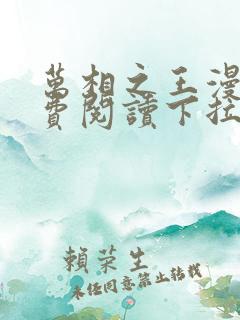 萬相之王漫
費閱讀下拉
賴榮生
未經同意禁止轉載